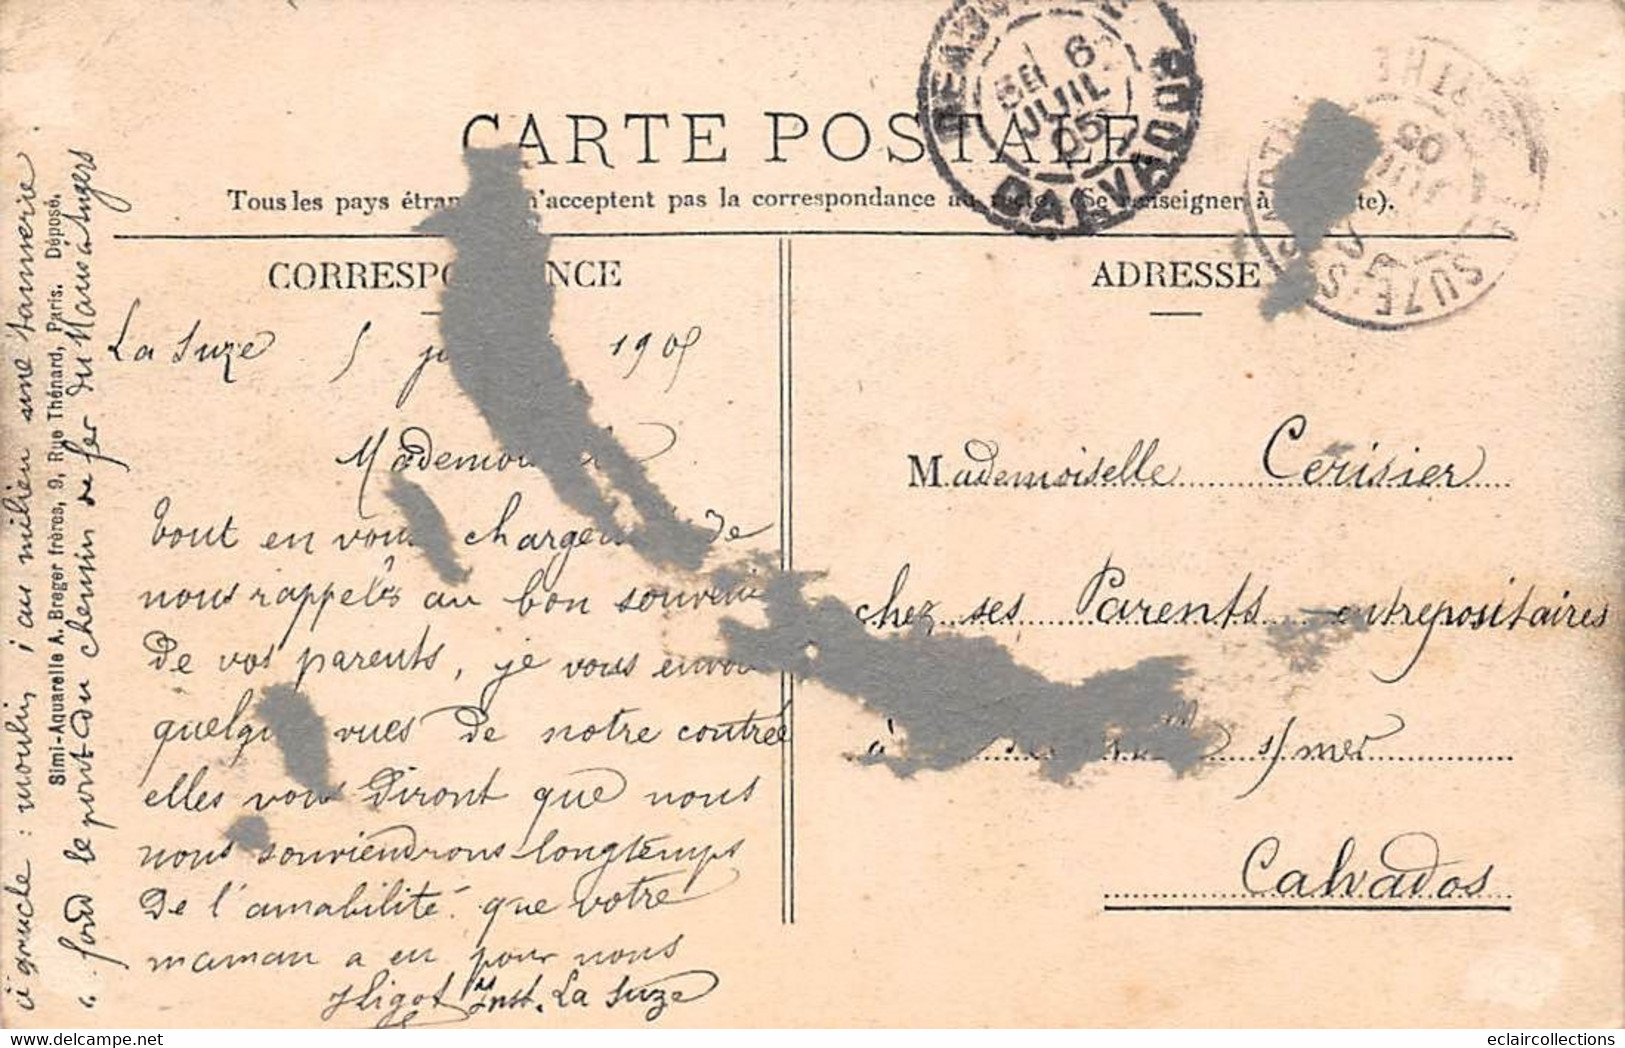 CARTE POSTALE
Tous les pays n'acceptent pas la correspondance au (Se renseigner à
CORRESP NCE
ADRESSE
La Suze 5 1905
Mademoi
tout en vous de
nous rappelés au bon souvenir
de vos parents, je vous envoie
quelqu vues de notre contrée
elles vous diront que nous
nous souviendrons longtemps
de l'amabilité que votre
maman a eu pour nous
Inst. La Suze
Mademoiselle Cerisier
chez ses Parents entrepositaires
à s/mer
Calvados
à gauche : moulin, au milieu une tannerie
Simi-Aquarelle A. Breger frères, 9, Rue Thénard, Paris. Déposé.
fond le pont du chemin de fer du Mans à Angers
6
JUIL
05
CALVADOS
05
SUZE-S